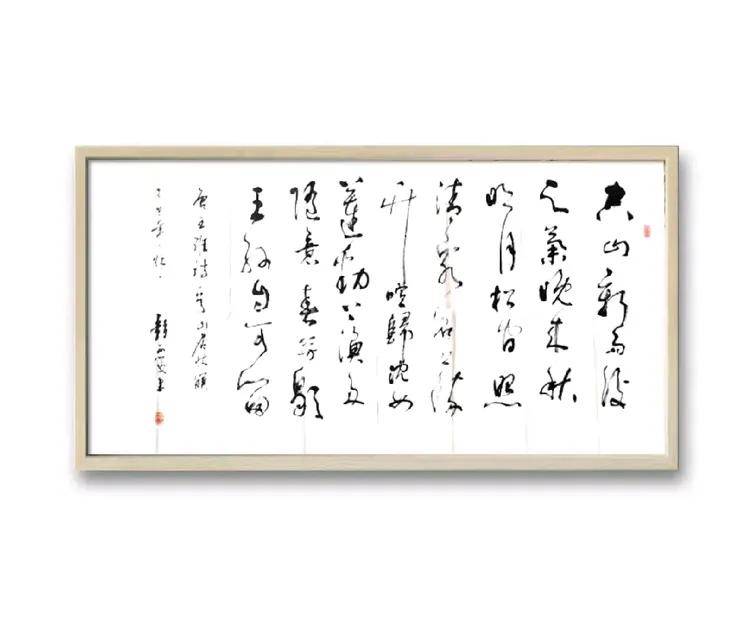 空山新雨後
天氣晚來秋
明月松間照
清泉石上流
竹喧歸浣女
蓮動下漁舟
隨意春芳歇
王孫自可留
唐王維詩山居秋暝